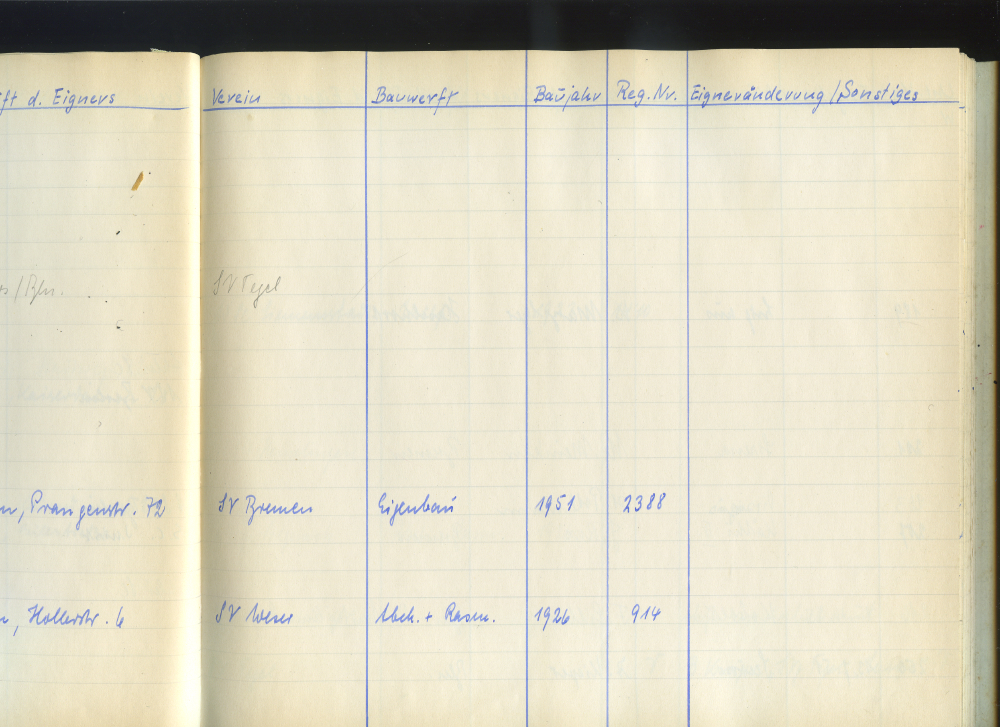 ft d. Eigners Verein Bauwerft Baujahr Reg. Nr. Eigneränderung/Sonstiges
/Bln. SV Tegel
n, Prangenstr. 72 SV Bremen Eigenbau 1951 2388
, Hollerstr. 6 SV Weser Abek. + Rasm. 1926 914